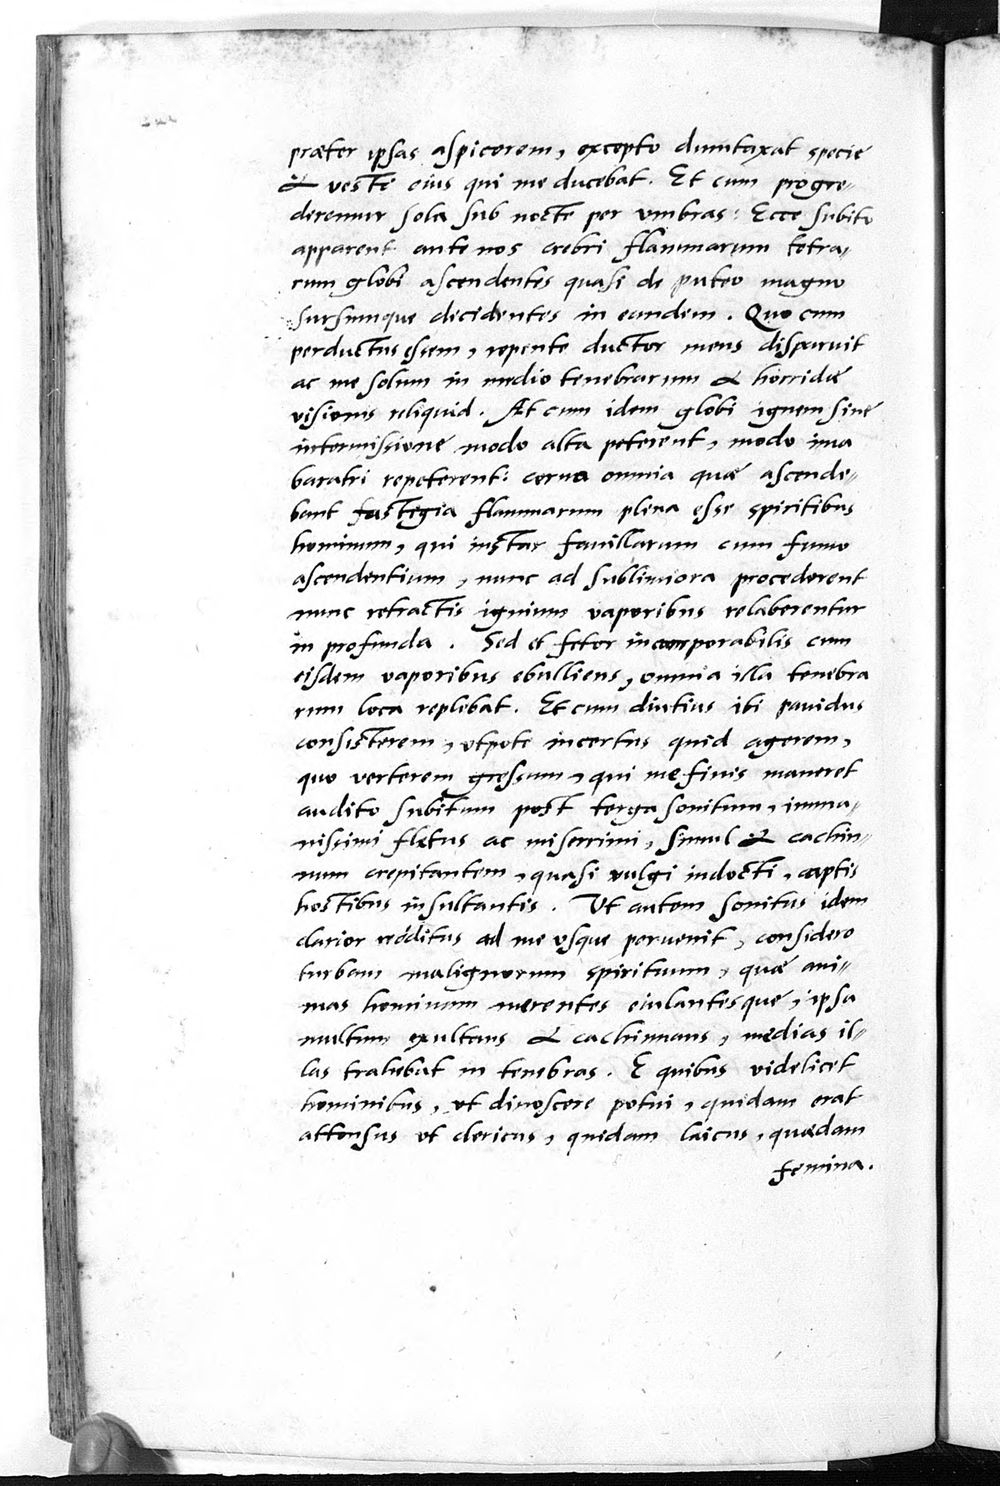 præter ipsas aspicerem, excepto dumtaxat specie
& veste eius qui me ducebat. Et cum progre-
deremur sola sub nocte per vmbras: Ecce subito
apparent ante nos crebri flammarum tetra-
rum globi ascendentes quasi de puteo magno
sursumque decidentes in eundem. Quo cum
perductus essem, repente ductor meus disparuit
ac me solum in medio tenebrarum & horridæ
visionis reliquid. At cum idem globi ignem sine
intermissione modo alta peterent, modo ima
baratri repeterent: cerna omnia quæ ascende-
bant fastegia flammarum plena esse spiritibus
hominum, qui instar fauillarum cum fumo
ascendentium, nunc ad sublimiora procederent
nunc retractis ignium vaporibus relaberentur
in profunda. Sed et fetor incomporabilis cum
eisdem vaporibus ebulliens, omnia illa tenebra
rum loca replebat. Et cum diutius ibi pauidus
consisterem, vtpote incertus quid agerem,
quo verterem gressum, qui me finis maneret
audito subitum post terga sonitum, imma-
nissimi fletus ac miserrimi, simul & cachin-
num crepitantem, quasi vulgi indocti, captis
hostibus insultantis. Ut autem sonitus idem
clarior redditus ad me vsque peruenit, considero
turbam malignorum spirituum, quæ ani-
mas hominum merentes eiulantesque, ipsa
multum exultans & cachinnans, medias il-
las trahebat in tenebras. E quibus videlicet
hominibus, vt dinoscere potui, quidam erat
attonsus vt clericus, quidam laicus, quædam
femina.